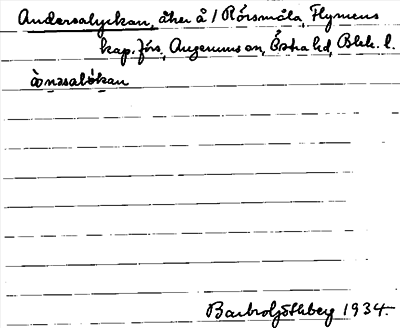 Anderslyckan, åker å 1 Rörsmåla, Flymens
kap.förs., Augerums sn, Östra hd, Blek. l.
ànǝsalỳkan
Barbro Ljöthberg 1934.